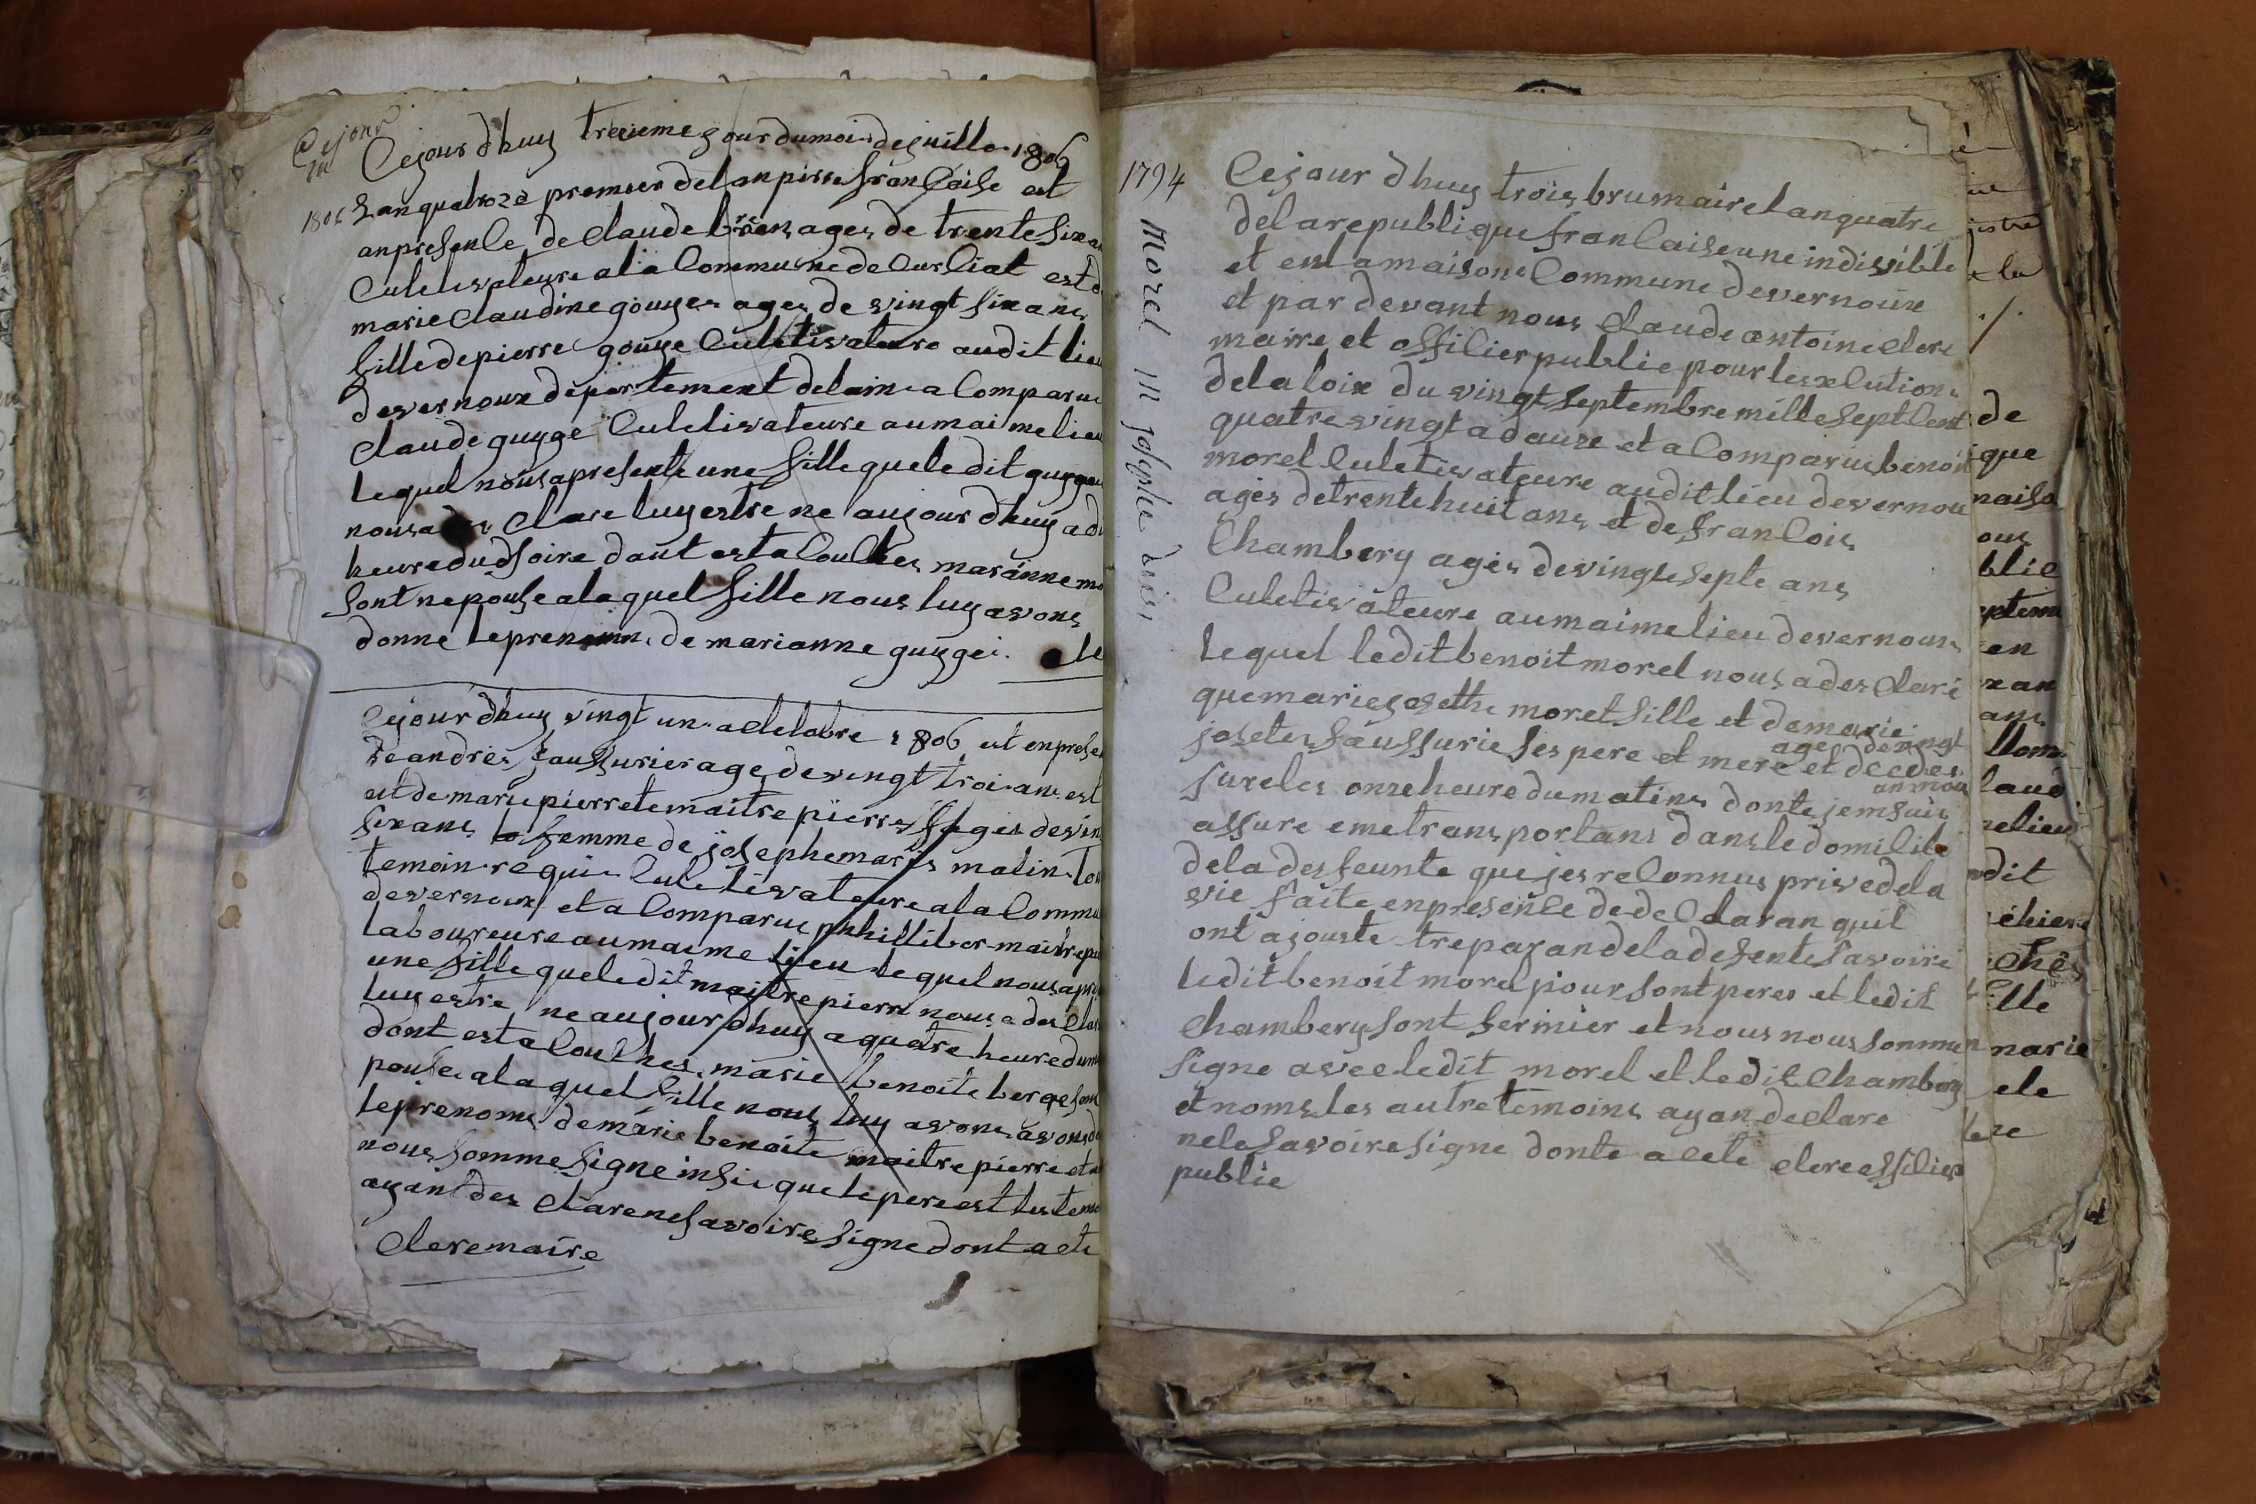 Cejour
Cejour dhuy treiziemes jour dumois dejuillo 1806
1806 Lan quatroze premier delanpirre françaisse est
anpresenle de Claude brren ages de trente six an
Culetivateure ala Commune de Curliat est d
marie Claudine gouyes ages de vingt six ans
fille depierre gouye Culetivateure audit lieu
devernoux departement delain a Comparue
Claude guyge Culetivateure aumaimelieu
lequel nousapresente une fille queledit guyge
nousa des Clare luy estre ne aujour dhuy a d
heure du soire dont est a Couches marianne mo
sont nepouse alaquel fille nous luy avons
donne leprenomn de marianne guygei. le
Cejour dhuy vingt un actelobre 1806 est enprese
de andrées saussurier age de vingt trois ans est
est de marie pierrete maitre pierre ages de vin
six ans femme de josephe maris matin
temoin requi Culetivateure ala Commu
devernoux et a Comparue phhilliber maitrepi
laboureure aumaime lieu lequel nous apre
une fille queledit maitre pierre nous a des Cla
luy estre ne aujour dhuy a quatre heure dum
dont est a Couches marie benoite berge son
pouse alaquel fille nous luy avons avons d
leprenoms de marie benoite maitre pierre et
nous somme signe insi que lepere est les temo
ayant des Clare ne savoire signe dont acte
Clere maire
1794
Morel m josephe deces
Cejour dhuy trois brumaire lan quatre
dela republique franCaise une indivible
et enl a maisone Commune devernoux
et par devant nous Claude antoine Clere
mairre et offilier publie pour lesxlution
dela loix du vingt septembre mille sept Cent
quatre vingt a dauze et a Comparue benoit
morel Culetivateure audit lieu devernou
ages de trente huit ans et de franCois
Chambery ages de vingte septe ans
Culetivateure aumaime lieu devernoux
lequel ledit benoit morel nous a des Clare
que marie josethe moret fille et demarie
josetes saussurie ses pere et mere et decedes
age devingt
an mou
sureles onze heure dumatins donte jemsuis
assure eme trans portans dans le domilile
dela desfeunte que jes reConnus prive dela
vie faite enpresenle de de Claran quil
ont ajouste tre paran dela defente savoire
ledit benoit morel pour sont peres et ledit
Chambery sont fermier et nous nous sommen
signe avec ledit morel et ledit Chambery
et noms les autre temoins ayan declare
nele savoire signe donte acete clere offilier
publie
jistre
la
de
que
naiso
blie
eptem
en
an
laud
nelieu
dit
marie